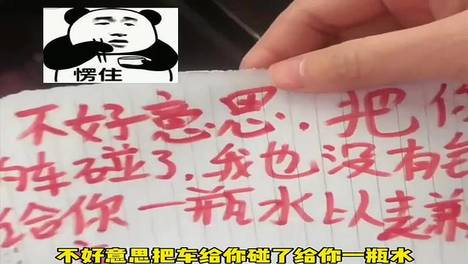 愣住
不好意思.把你
的车碰了.我也没有钱
给你一瓶水以表歉
不好意思把车给你碰了给你一瓶水